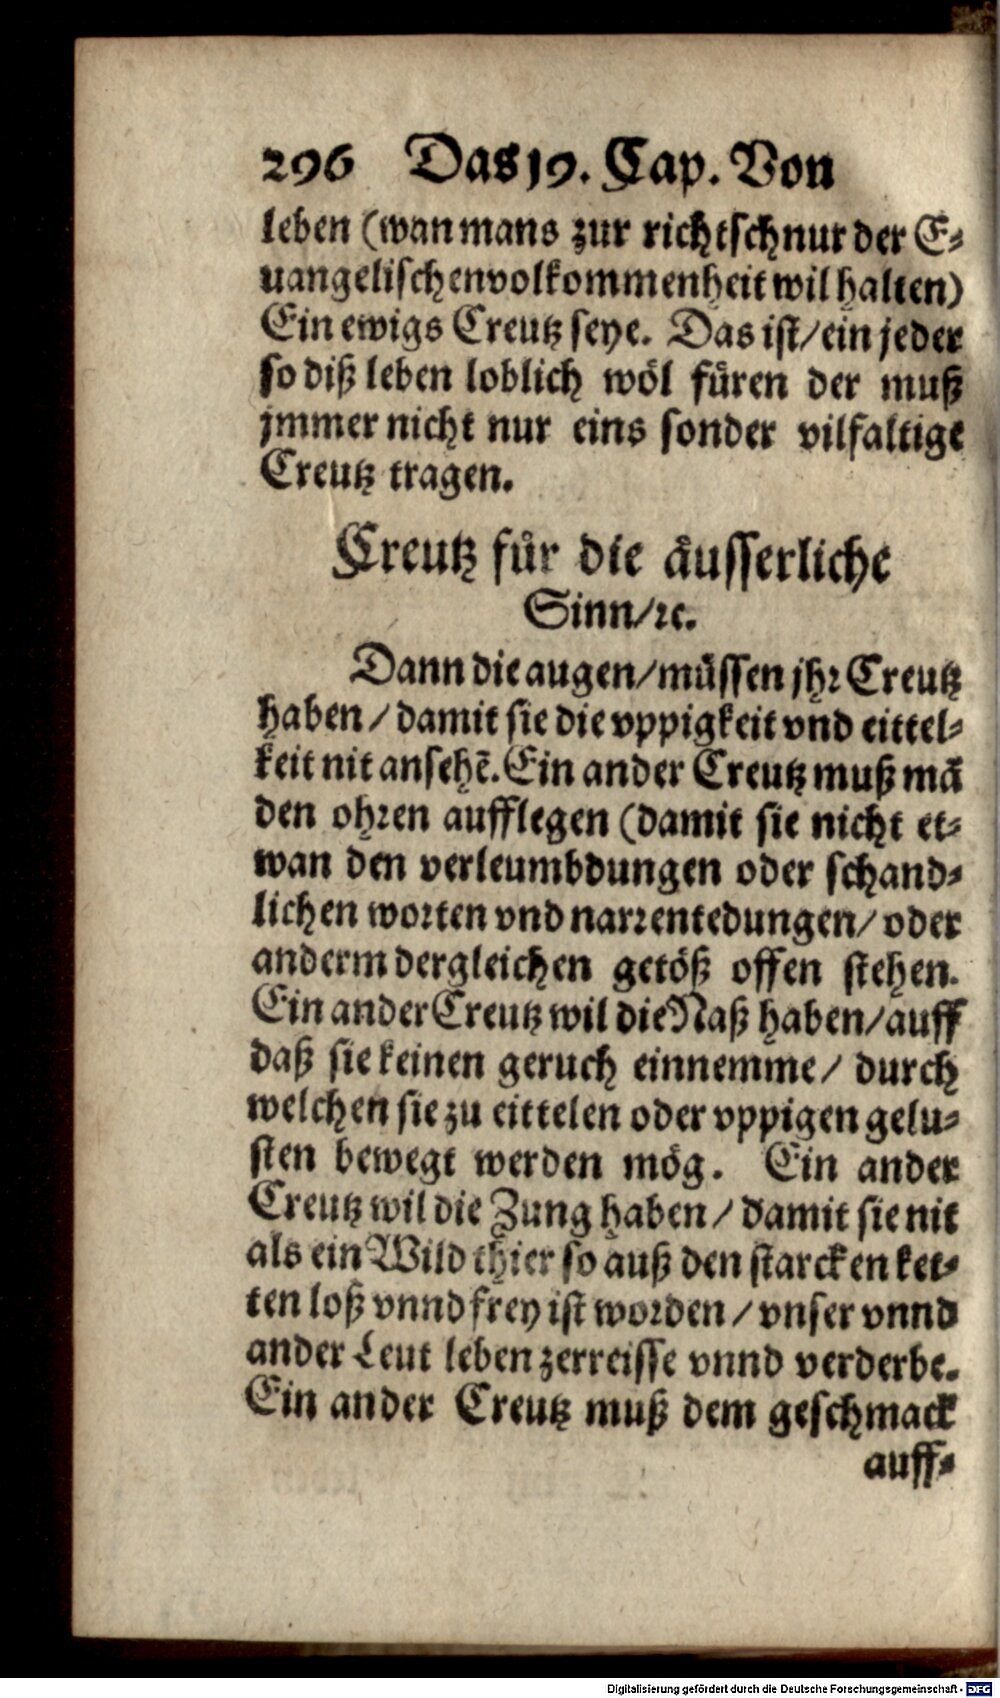 296 Das 19. Cap. Von
leben (wan mans zur richtschnur der E-
uangelischen volkommenheit wil halten)
Ein ewigs Creutz seye. Das ist/ ein jeder
so diß leben loblich wöl füren der muß
jmmer nicht nur eins sonder vilfaltige
Creutz tragen.
Creutz für die äusserliche
Sinn/ ꝛc.
Dann die augen/ müssen jhr Creutz
haben/ damit sie die vppigkeit vnd eittel-
keit nit ansehē. Ein ander Creutz muß mā
den ohren aufflegen (damit sie nicht et-
wan den verleumbdungen oder schand-
lichen worten vnd narrentedungen/ oder
anderm dergleichen getöß offen stehen.
Ein ander Creutz wil die Naß haben/ auff
daß sie keinen geruch einnemme/ durch
welchen sie zu eittelen oder vppigen gelu-
sten bewegt werden mög. Ein ander
Creutz wil die Zung haben/ damit sie nit
als ein Wild thier so auß den starcken ket-
ten loß vnnd frey ist worden/ vnser vnnd
ander Leut leben zerreisse vnnd verderbe.
Ein ander Creutz muß dem geschmack
auff-
Digitalisierung gefördert durch die Deutsche Forschungsgemeinschaft - DFG